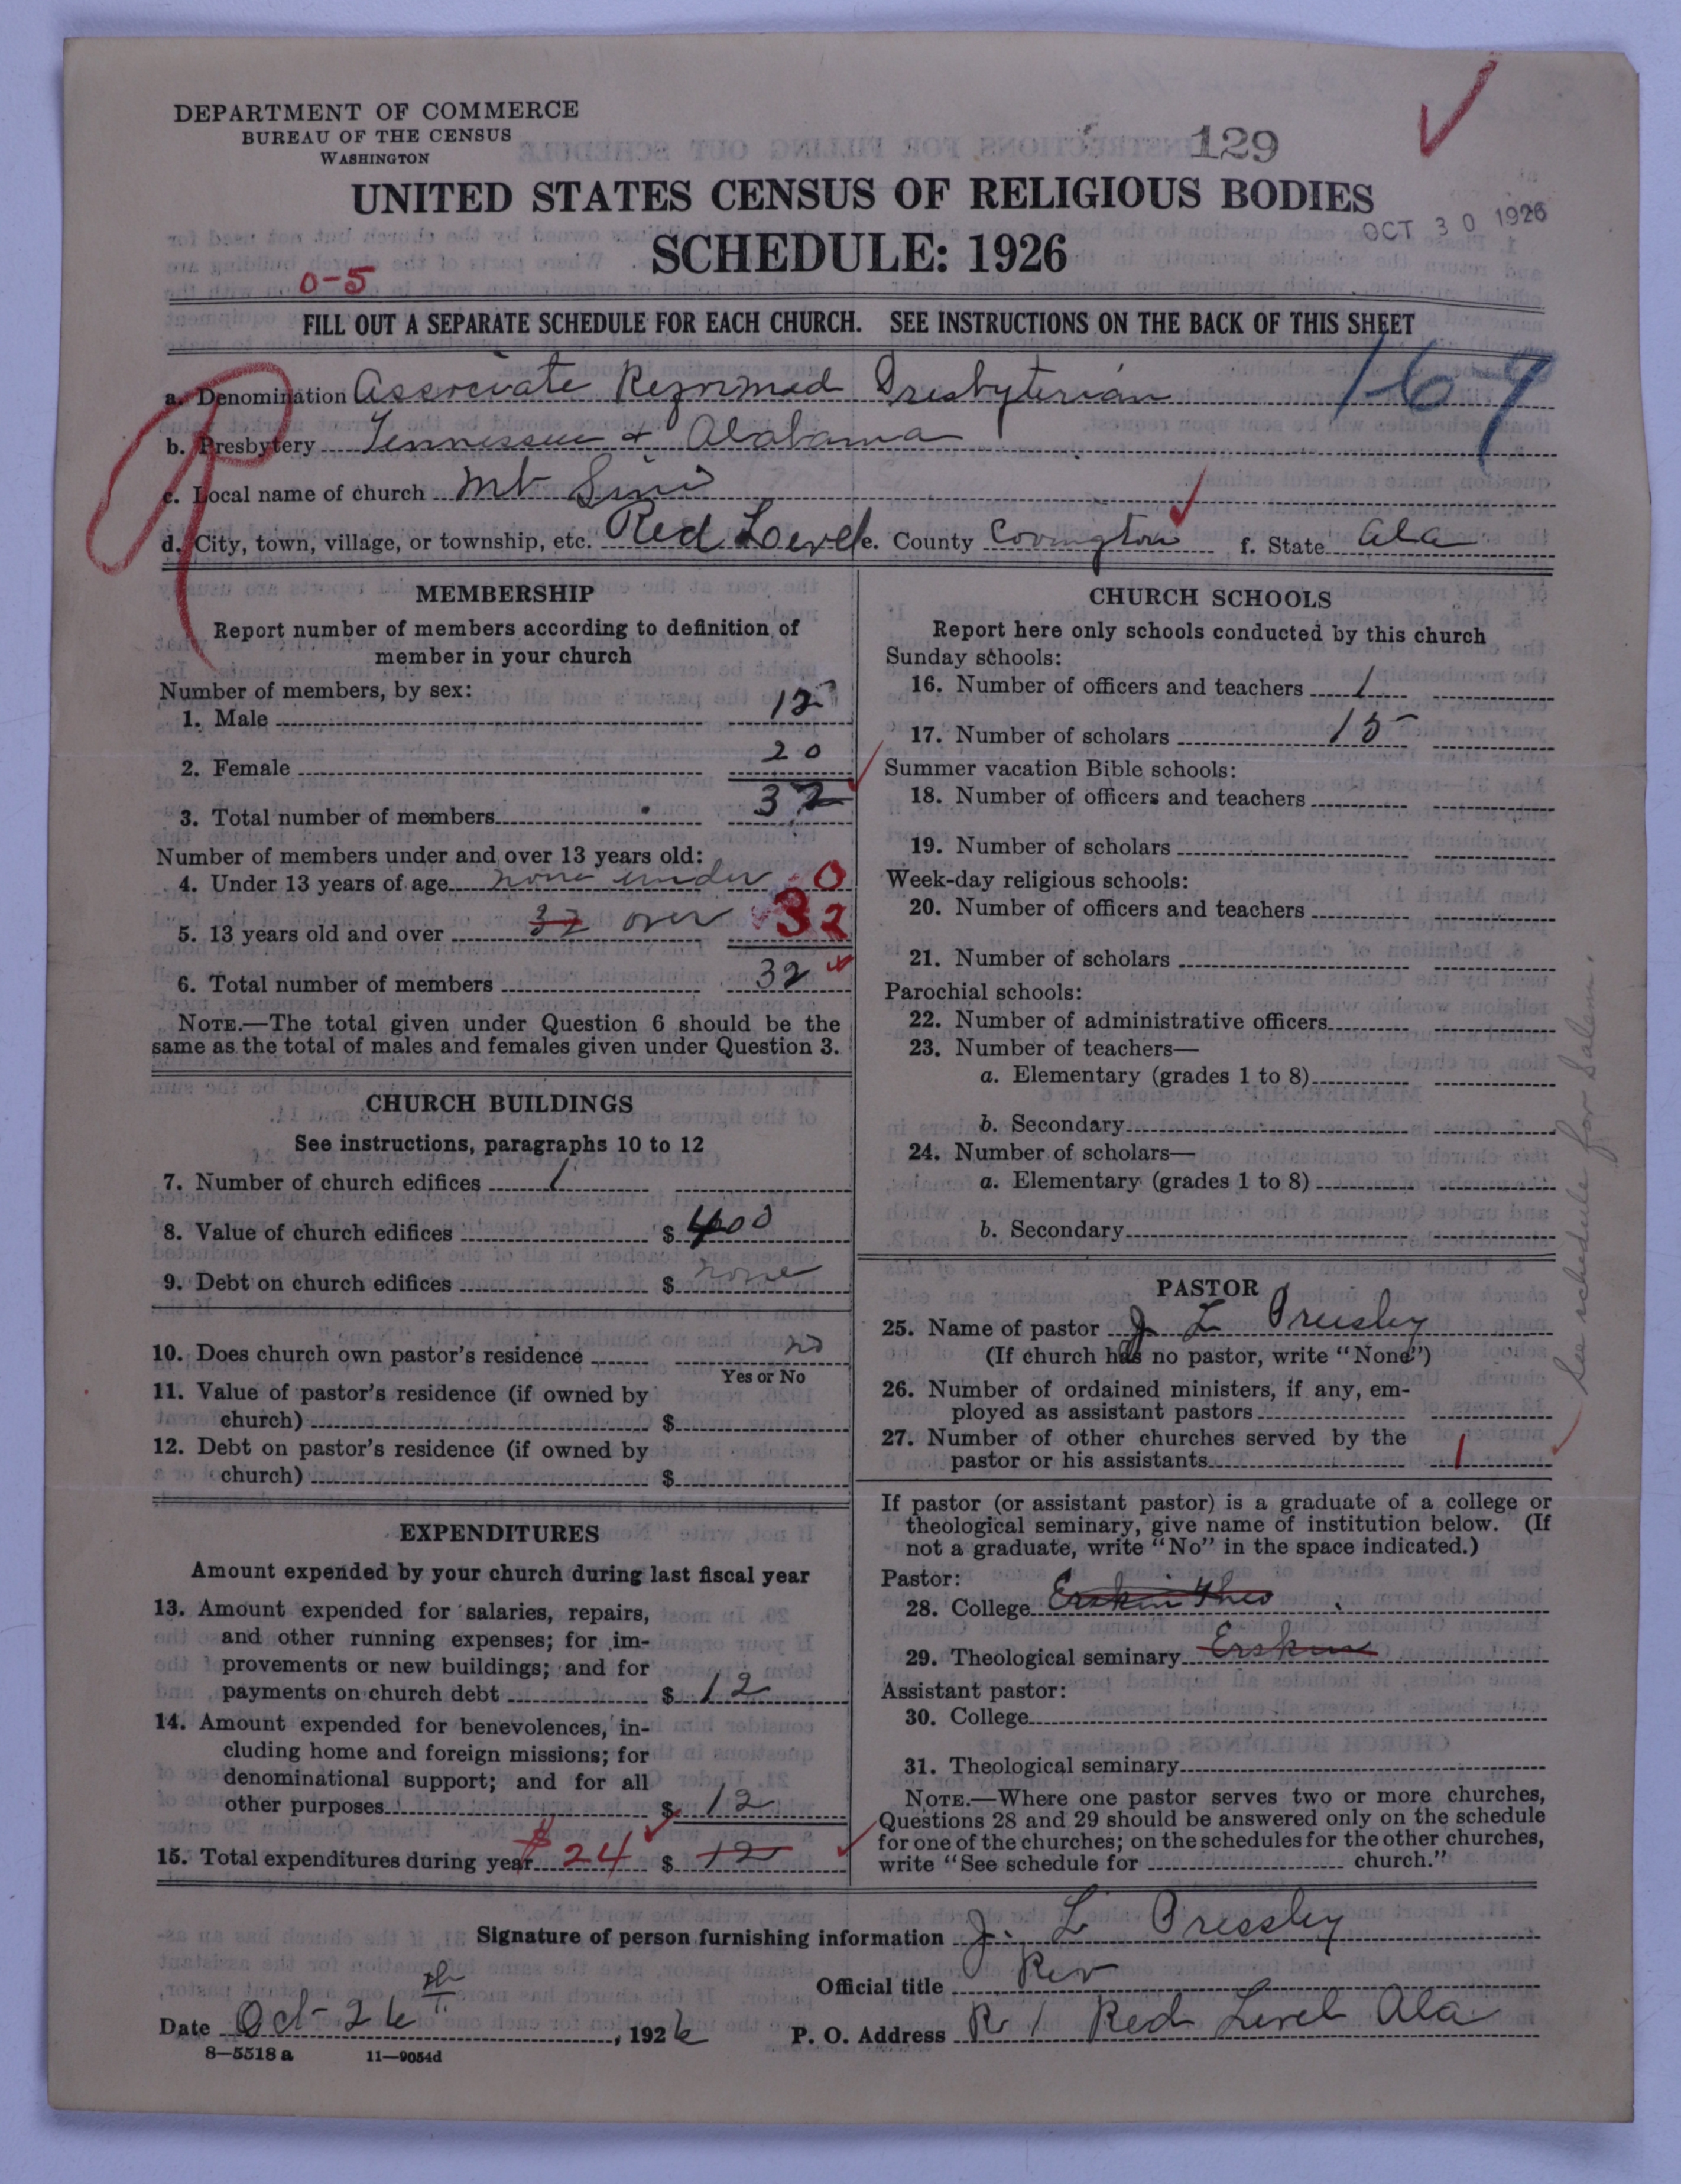 DEPARTMENT OF COMMERCE
BUREAU OF THE CENSUS
WASHINGTON
129
UNITED STATES CENSUS OF RELIGIOUS BODIES
SCHEDULE: 1926
OCT 30 1926
0-5
FILL OUT A SEPARATE SCHEDULE FOR EACH CHURCH. SEE INSTRUCTIONS ON THE BACK OF THIS SHEET
a. Denomination Associate Reformed Presbyterian
b. Presbytery Tennessee & Alabama
c. Local name of church Mt Sini
d. City, town, village, or township, etc. Red Level e. County Covington f. State Ala
MEMBERSHIP
Report number of members according to definition of
member in your church
Number of members, by sex:
1. Male 12
2. Female 20
3. Total number of members 32
Number of members under and over 13 years old:
4. Under 13 years of age none under 0
5. 13 years old and over 32 over 32
6. Total number of members 32
NOTE.—The total given under Question 6 should be the
same as the total of males and females given under Question 3.
CHURCH BUILDINGS
See instructions, paragraphs 10 to 12
7. Number of church edifices 1
8. Value of church edifices $ 400
9. Debt on church edifices $ none
10. Does church own pastor's residence no
Yes or No
11. Value of pastor's residence (if owned by
church) $
12. Debt on pastor's residence (if owned by
church) $
EXPENDITURES
Amount expended by your church during last fiscal year
13. Amount expended for salaries, repairs,
and other running expenses; for im-
provements or new buildings; and for
payments on church debt $ 12
14. Amount expended for benevolences, in-
cluding home and foreign missions; for
denominational support; and for all
other purposes $ 12
15. Total expenditures during year $ 24 $ 12
CHURCH SCHOOLS
Report here only schools conducted by this church
Sunday schools:
16. Number of officers and teachers 1
17. Number of scholars 15
Summer vacation Bible schools:
18. Number of officers and teachers
19. Number of scholars
Week-day religious schools:
20. Number of officers and teachers
21. Number of scholars
Parochial schools:
22. Number of administrative officers
23. Number of teachers—
a. Elementary (grades 1 to 8)
b. Secondary
24. Number of scholars—
a. Elementary (grades 1 to 8)
b. Secondary
PASTOR
25. Name of pastor J L Pressley
(If church has no pastor, write "None")
26. Number of ordained ministers, if any, em-
ployed as assistant pastors
27. Number of other churches served by the
pastor or his assistants 1
If pastor (or assistant pastor) is a graduate of a college or
theological seminary, give name of institution below. (If
not a graduate, write "No" in the space indicated.)
Pastor:
28. College Erskin Theo
29. Theological seminary Erskin
Assistant pastor:
30. College
31. Theological seminary
NOTE.—Where one pastor serves two or more churches,
Questions 28 and 29 should be answered only on the schedule
for one of the churches; on the schedules for the other churches,
write "See schedule for church."
See schedule for Salem.
Signature of person furnishing information J. L Pressley
Official title Rev
Date Oct 26th, 1926 P. O. Address R 1 Red Level Ala
8—5518 a 11—9054d